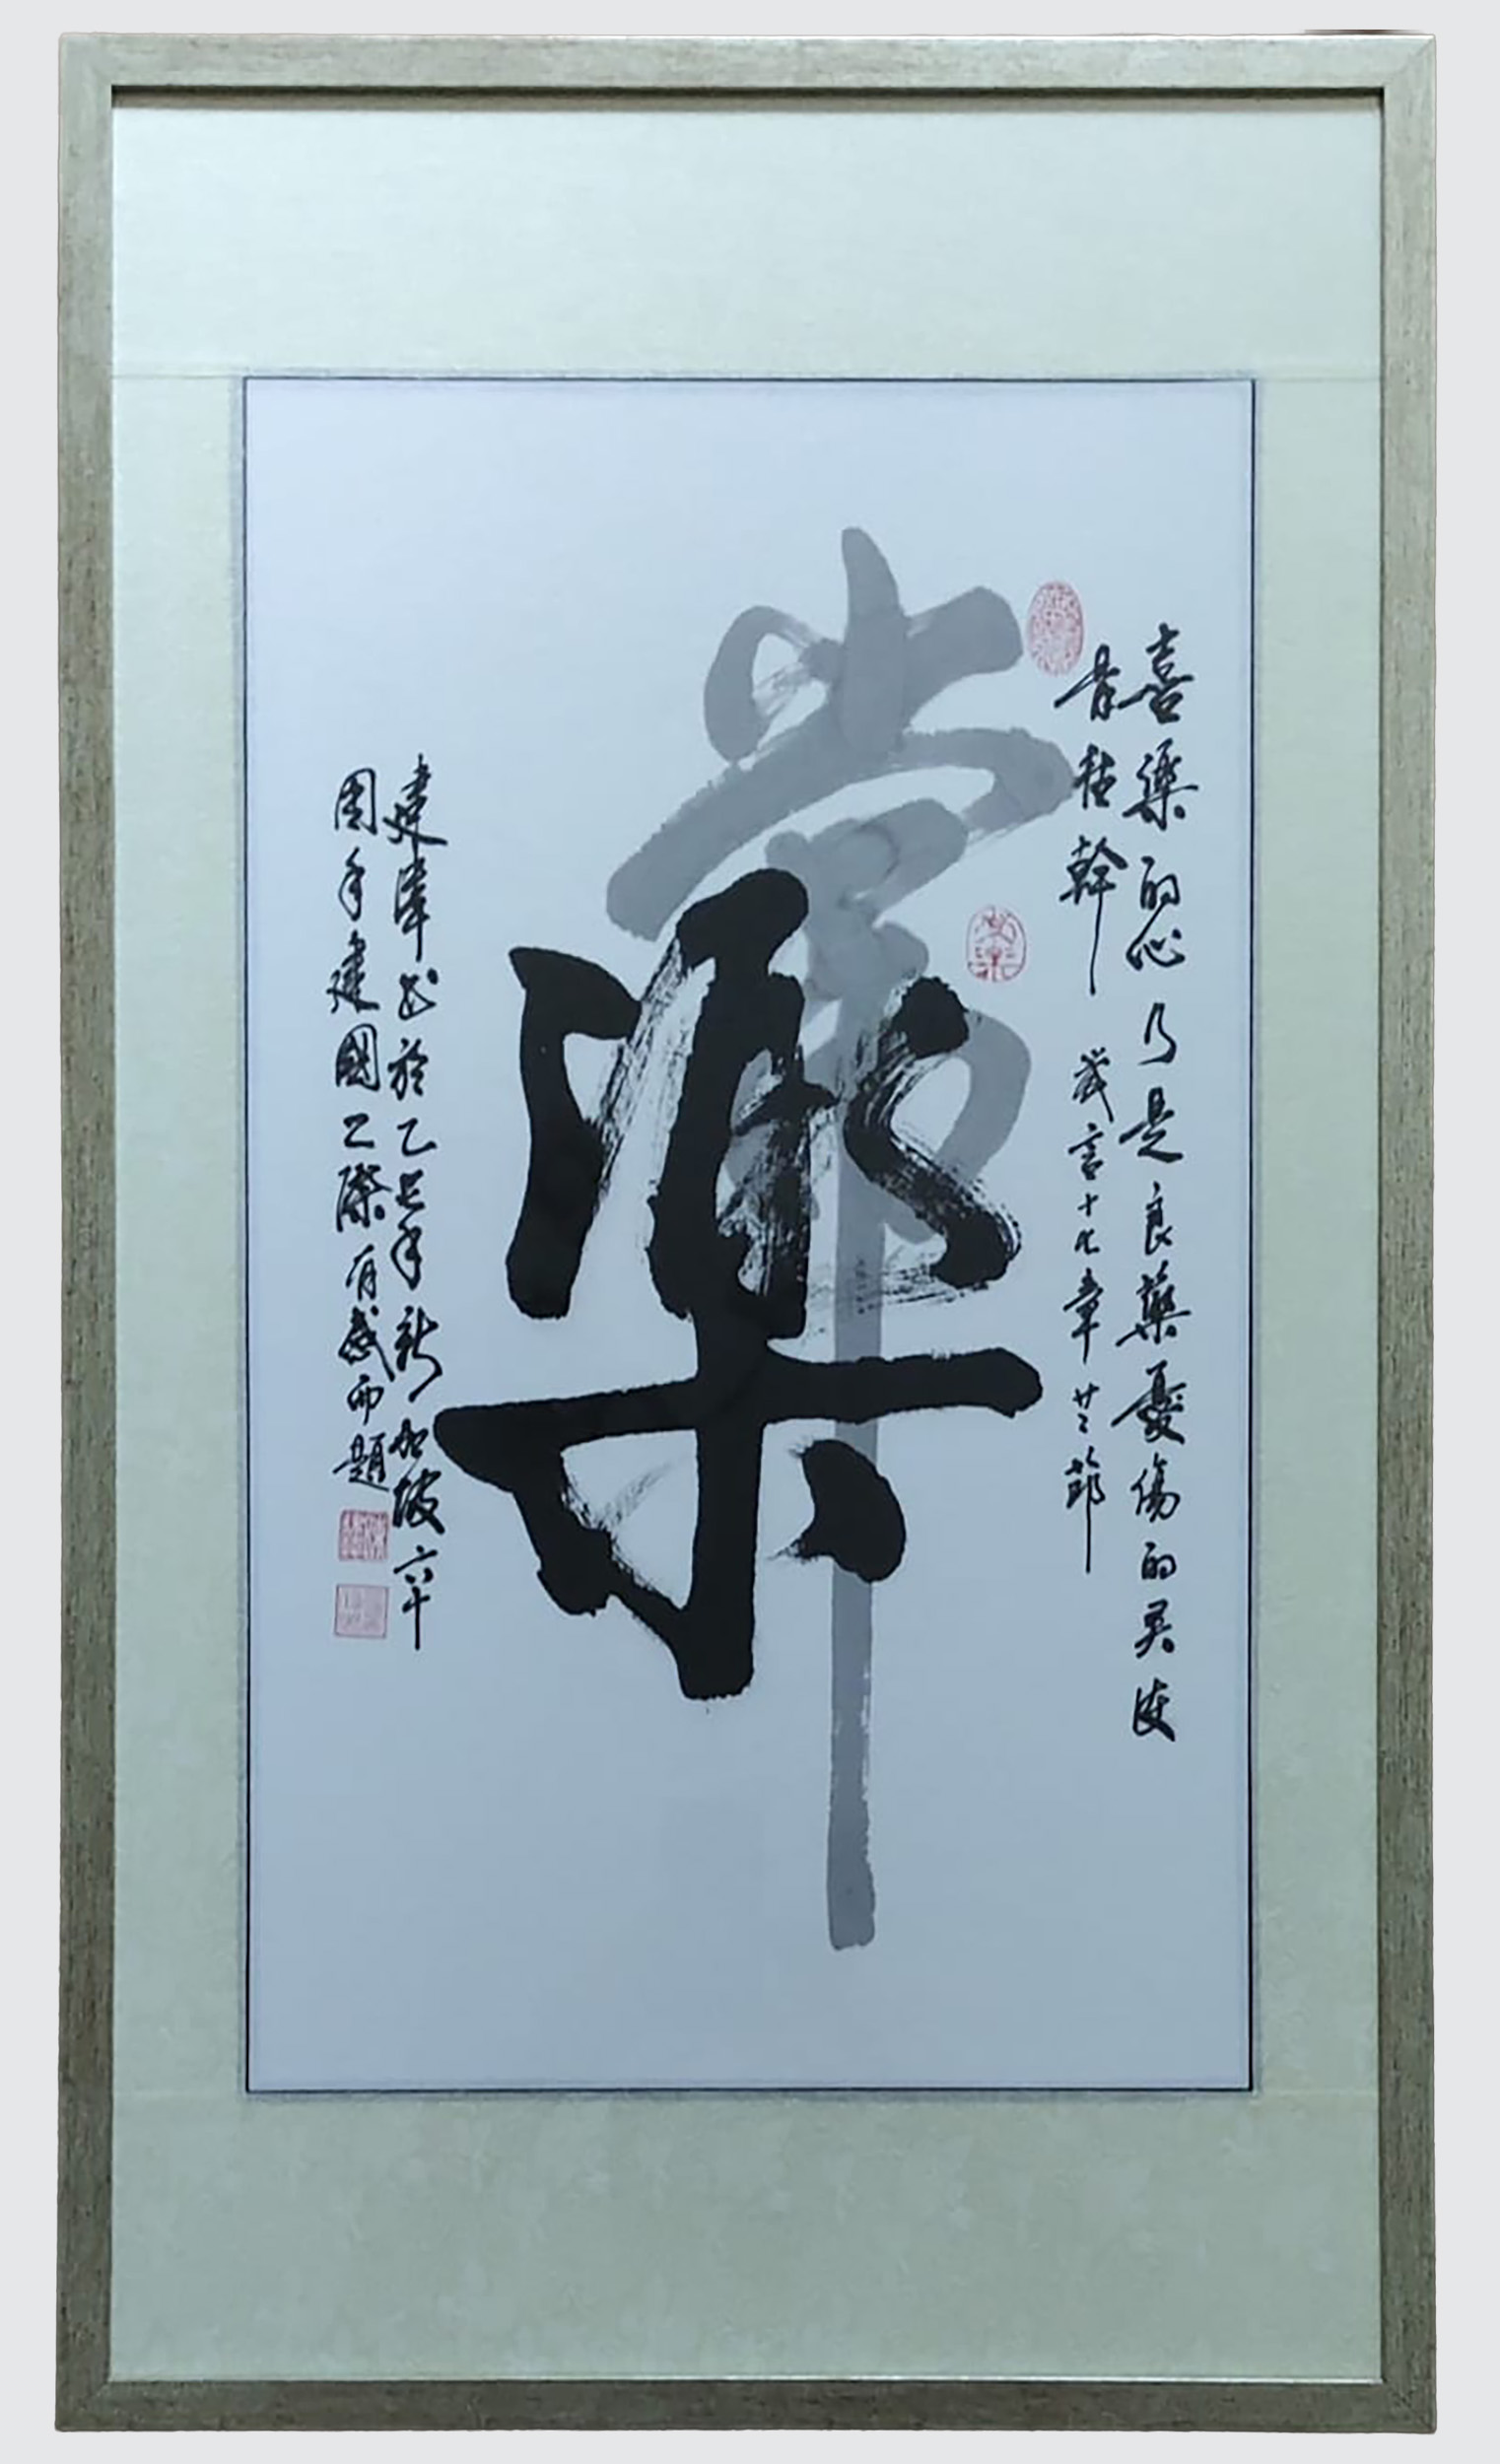 喜樂的心乃是良藥憂傷的灵使
骨枯幹 箴言十七章廿二節
常
樂
建书於乙巳年新加坡六十
周年建國之際有感而題